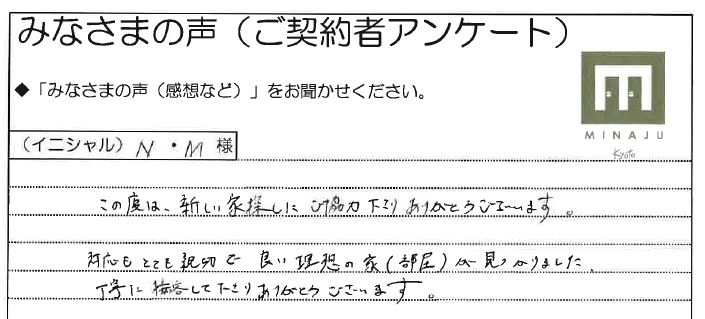 みなさまの声（ご契約者アンケート）
◆「みなさまの声（感想など）」をお聞かせください。
MINAJU
Kyoto
（イニシャル）N・M様
この度は、新しい家探しにご協力下さりありがとうございます。
対応もとても親切で良い理想の家（部屋）が見つかりました。
丁寧に接客して下さりありがとうございます。